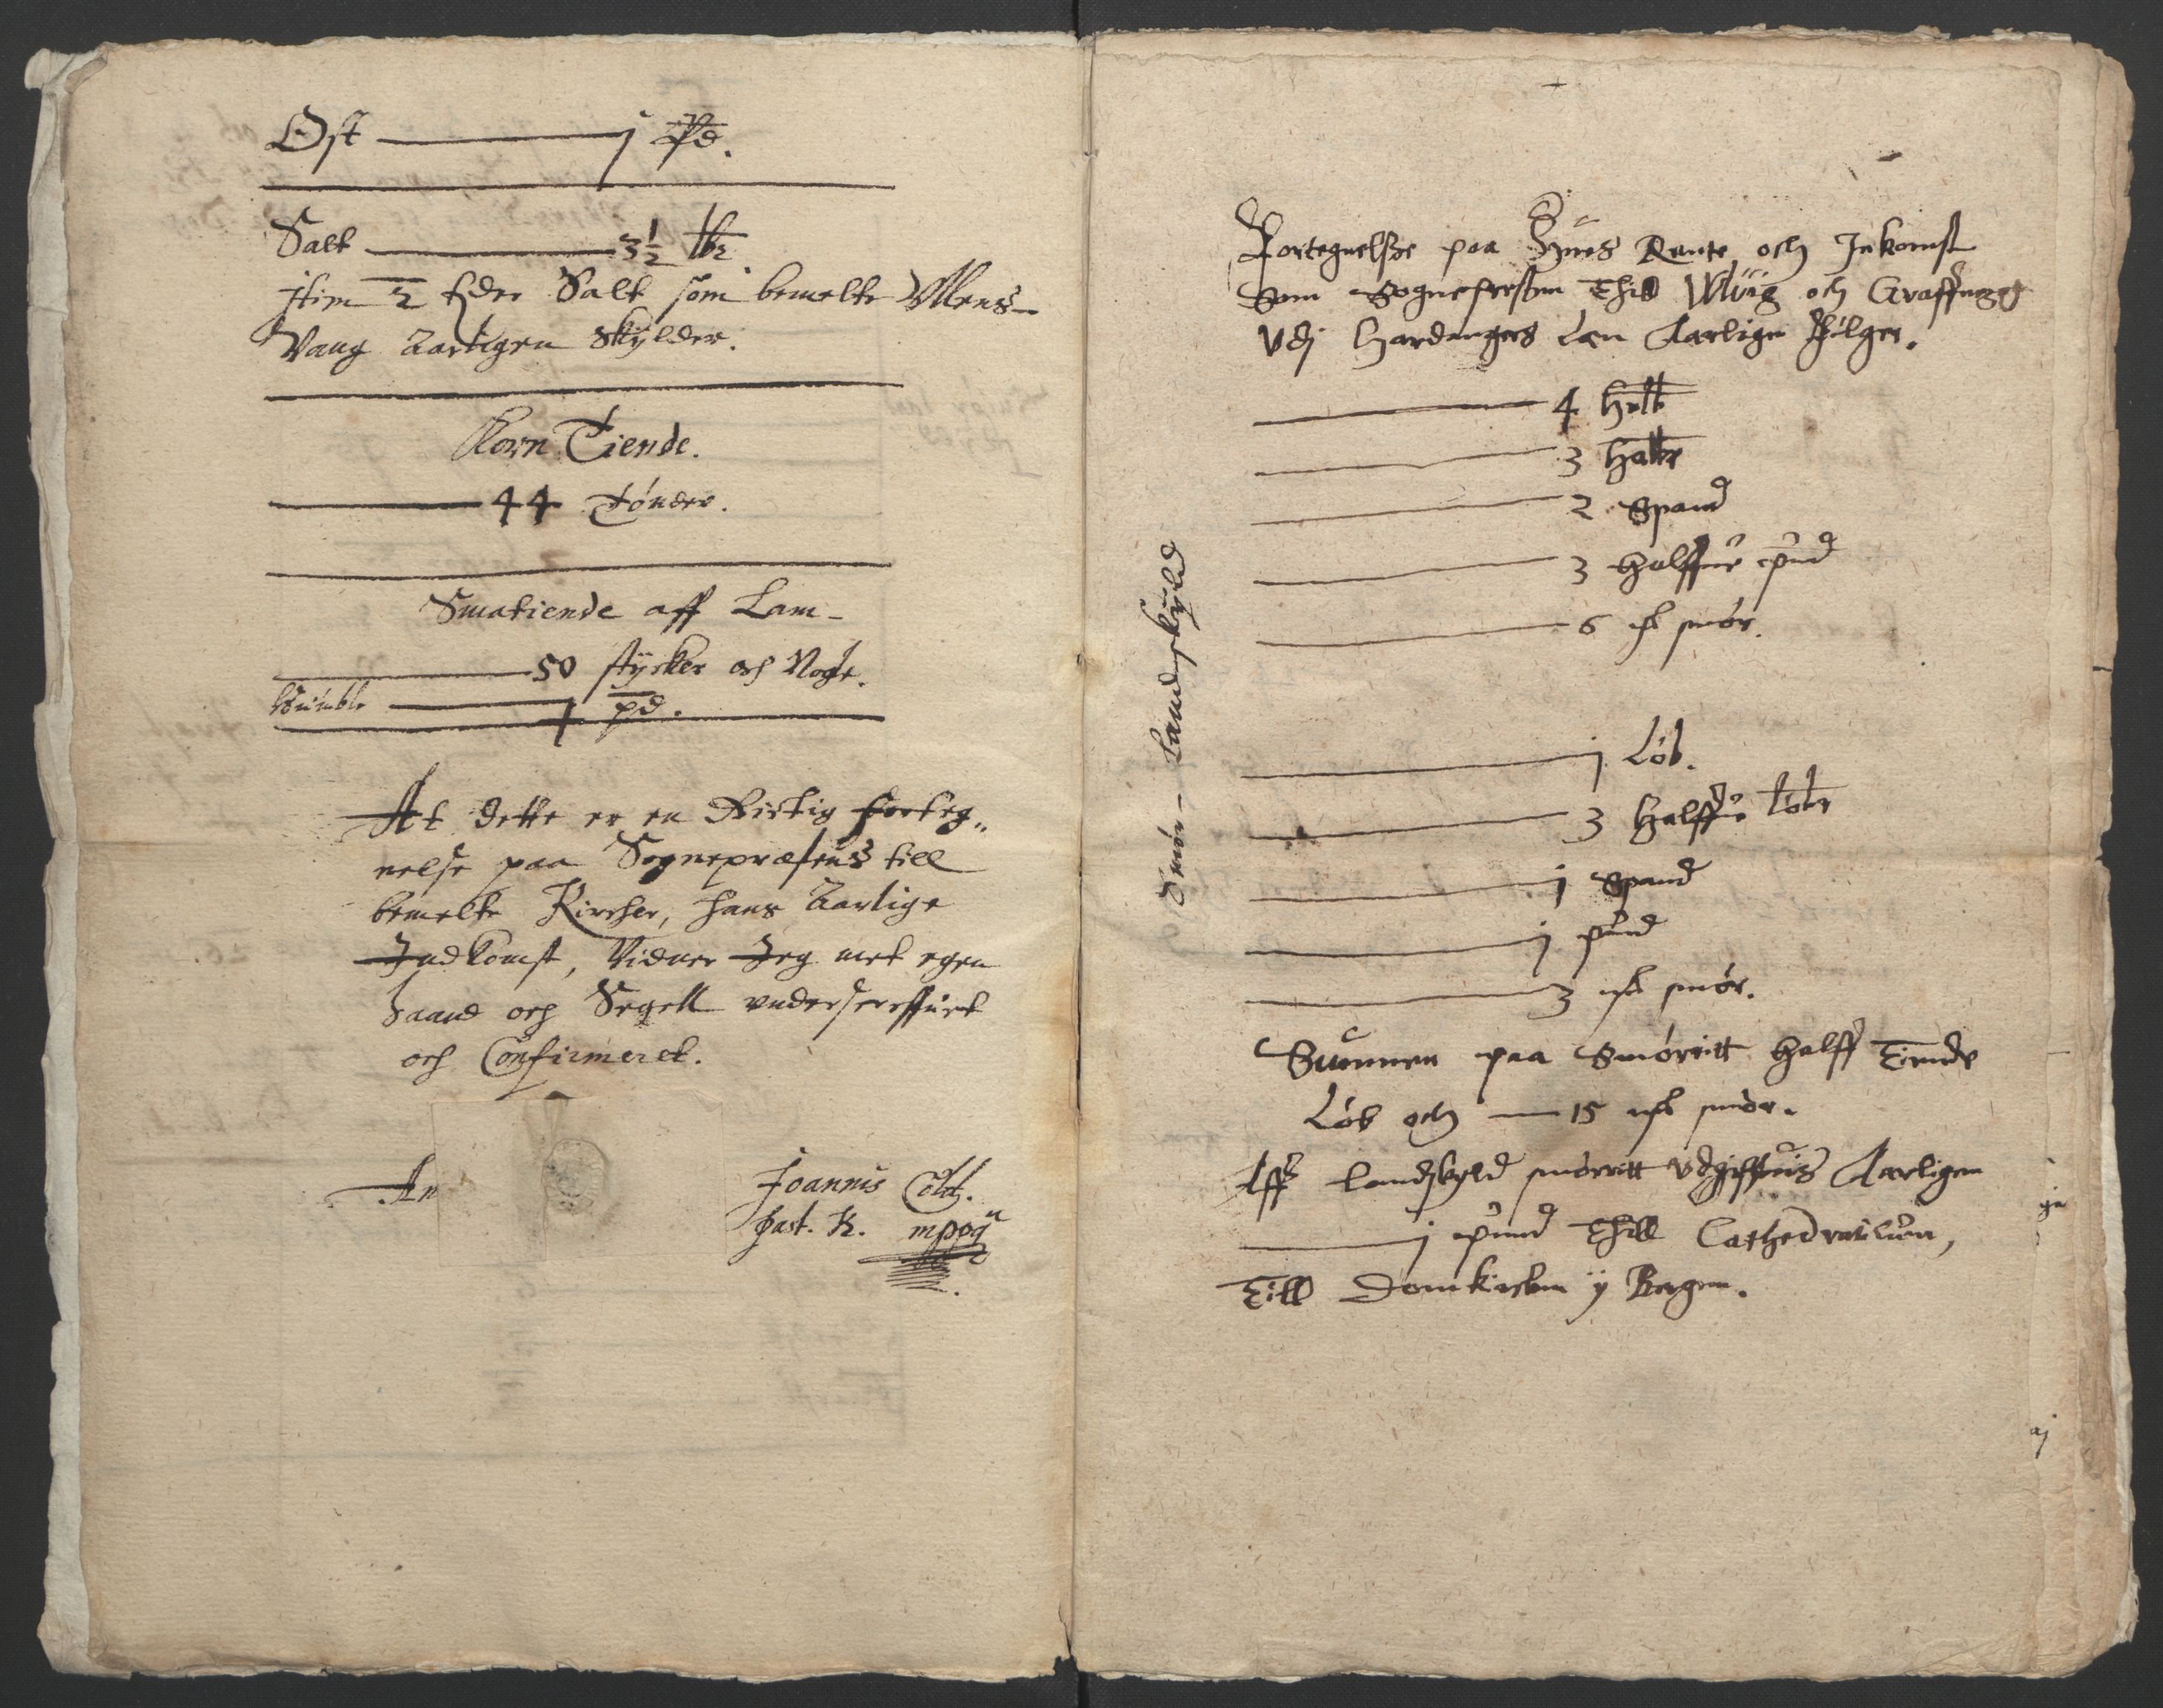 Ost ——— j Pd.
Salt ——— 3½ tbr
Jtem ½ tder Salt som bemelte Ullens-
Vang aarligen skylder.
Korn Tiende.
——— 44 tónder.
Smatiende aff Lam-
——— 50 stÿcker och Nogle.
Humble ——— 1 pd.
At dette er en Rictig forteg„
nelse paa Sognepræstens till
bemelte Kircher, hans Aarlige
Indkomst, Vidner Jeg met egen
haand och Segell underscreffuet
och Confirmeret.
An
Joannis
past. K. mppa
Fortegnelsse paa Rente och Jnkomst
Som Sognepresten thill Wluig och Graffuen
Udj Hardangers Len Aarlige fólger.
Smór-Landskyld
——— 4
——— 3
——— 2 Spand
——— 3 halffue pund
——— 6 smór.
——— j Lób.
——— 3 halffue lób
——— j Spand
——— j pund
——— 3 smór.
Summen paa Smórritt halff tiende
Lób och — 15 smór.
Aff landskyld smórritt udgiffuis Aarligen
——— j pund thill Cathedraticum,
Till Domkircken ÿ Bergen.